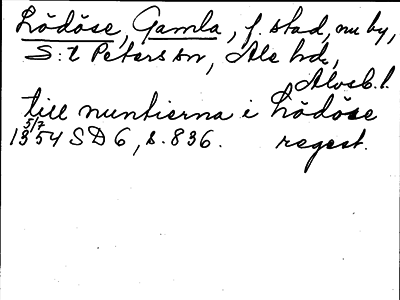 Lödöse, Gamla, f. stad, nu by,
S:t Peters sn, Ale hd,
Älvsb. l.
till nuntierna i Lödöse
5/7
1354 SD 6, s. 836. regest.